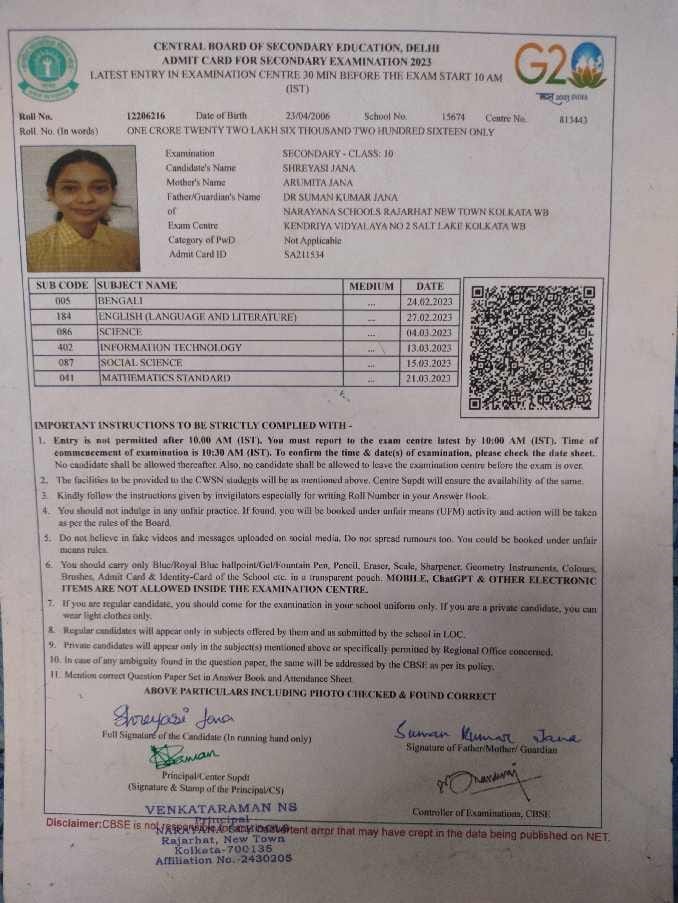 CENTRAL BOARD OF SECONDARY EDUCATION, DELHI
ADMIT CARD FOR SECONDARY EXAMINATION 2023
LATEST ENTRY IN EXAMINATION CENTRE 30 MIN BEFORE THE EXAM START 10 AM
(IST)
G20
भारत 2023 INDIA
Roll No. 12206216 Date of Birth 23/04/2006 School No. 15674 Centre No. 813443
Roll No. (In words) ONE CRORE TWENTY TWO LAKH SIX THOUSAND TWO HUNDRED SIXTEEN ONLY
Examination SECONDARY - CLASS: 10
Candidate's Name SHREYASI JANA
Mother's Name ARUMITA JANA
Father/Guardian's Name DR SUMAN KUMAR JANA
of NARAYANA SCHOOLS RAJARHAT NEW TOWN KOLKATA WB
Exam Centre KENDRIYA VIDYALAYA NO 2 SALT LAKE KOLKATA WB
Category of PwD Not Applicable
Admit Card ID SA211534
SUB CODE SUBJECT NAME MEDIUM DATE
005 BENGALI ... 24.02.2023
184 ENGLISH (LANGUAGE AND LITERATURE) ... 27.02.2023
086 SCIENCE ... 04.03.2023
402 INFORMATION TECHNOLOGY ... 13.03.2023
087 SOCIAL SCIENCE ... 15.03.2023
041 MATHEMATICS STANDARD ... 21.03.2023
IMPORTANT INSTRUCTIONS TO BE STRICTLY COMPLIED WITH -
1. Entry is not permitted after 10.00 AM (IST). You must report to the exam centre latest by 10:00 AM (IST). Time of
commencement of examination is 10:30 AM (IST). To confirm the time & date(s) of examination, please check the date sheet.
No candidate shall be allowed thereafter. Also, no candidate shall be allowed to leave the examination centre before the exam is over.
2. The facilities to be provided to the CWSN students will be as mentioned above. Centre Supdt will ensure the availability of the same.
3. Kindly follow the instructions given by invigilators especially for writing Roll Number in your Answer Book.
4. You should not indulge in any unfair practice. If found, you will be booked under unfair means (UFM) activity and action will be taken
as per the rules of the Board.
5. Do not believe in fake videos and messages uploaded on social media. Do not spread rumours too. You could be booked under unfair
means rules.
6. You should carry only Blue/Royal Blue ballpoint/Gel/Fountain Pen, Pencil, Eraser, Scale, Sharpener, Geometry Instruments, Colours,
Brushes, Admit Card & Identity-Card of the School etc. in a transparent pouch. MOBILE, ChatGPT & OTHER ELECTRONIC
ITEMS ARE NOT ALLOWED INSIDE THE EXAMINATION CENTRE.
7. If you are regular candidate, you should come for the examination in your school uniform only. If you are a private candidate, you can
wear light clothes only.
8. Regular candidates will appear only in subjects offered by them and as submitted by the school in LOC.
9. Private candidates will appear only in the subject(s) mentioned above or specifically permitted by Regional Office concerned.
10. In case of any ambiguity found in the question paper, the same will be addressed by the CBSE as per its policy.
11. Mention correct Question Paper Set in Answer Book and Attendance Sheet.
ABOVE PARTICULARS INCLUDING PHOTO CHECKED & FOUND CORRECT
Shreyasi Jana
Full Signature of the Candidate (In running hand only)
Suman Kumar Jana
Signature of Father/Mother/ Guardian
Principal/Center Supdt
(Signature & Stamp of the Principal/CS)
Controller of Examinations, CBSE
VENKATARAMAN NS
Principal
Disclaimer:CBSE is not responsible for any inadvertent error that may have crept in the data being published on NET.
Rajarhat, New Town
Kolkata-700135
Affiliation No.-2430205